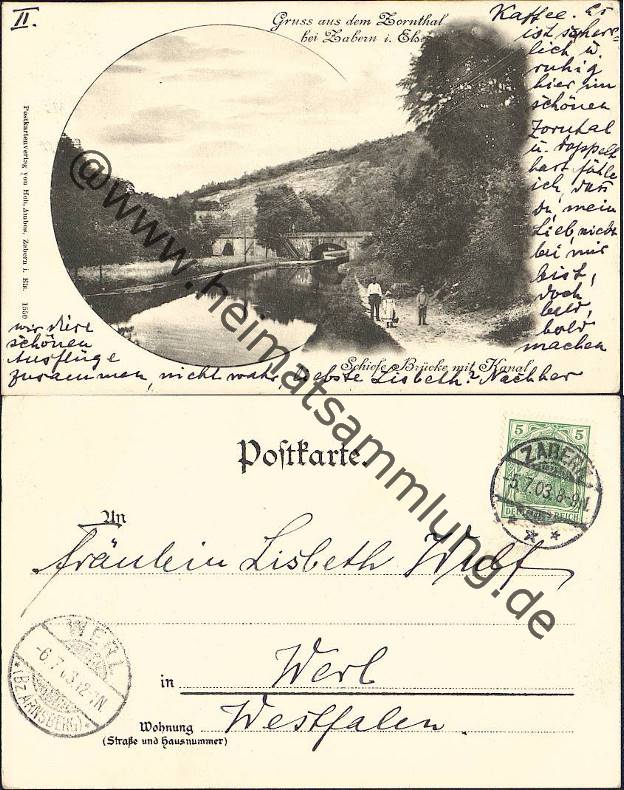 II.
Gruss aus dem Zornthal
bei Zabern i. Els.
Kaffee. Es
ist scherz-
lich u.
ruhig
hier im
schönen
Zornthal
u. doppelt
hart fühle
ich, daß
du, mein
Lieb, nicht
bei mir
bist,
doch
bald,
bald
machen
wir diese
schönen
Ausflüge
zusammen, nicht wahr, liebste Lisbeth? Nachher
Schiefe Brücke mit Kanal
Postkartenverlag von Hch. Ambos, Zabern i. Els. 1550
@www.heimatsammlung.de
Postkarte.
An
Fräulein Lisbeth Wulf
in Werl
Wohnung Westfalen.
(Straße und Hausnummer)
5 5
DEUTSCHES REICH
ZABERN
-5.7.03.8-9N.
WERL
-6.7.03.12-1N
*(BZ ARNSBERG)*